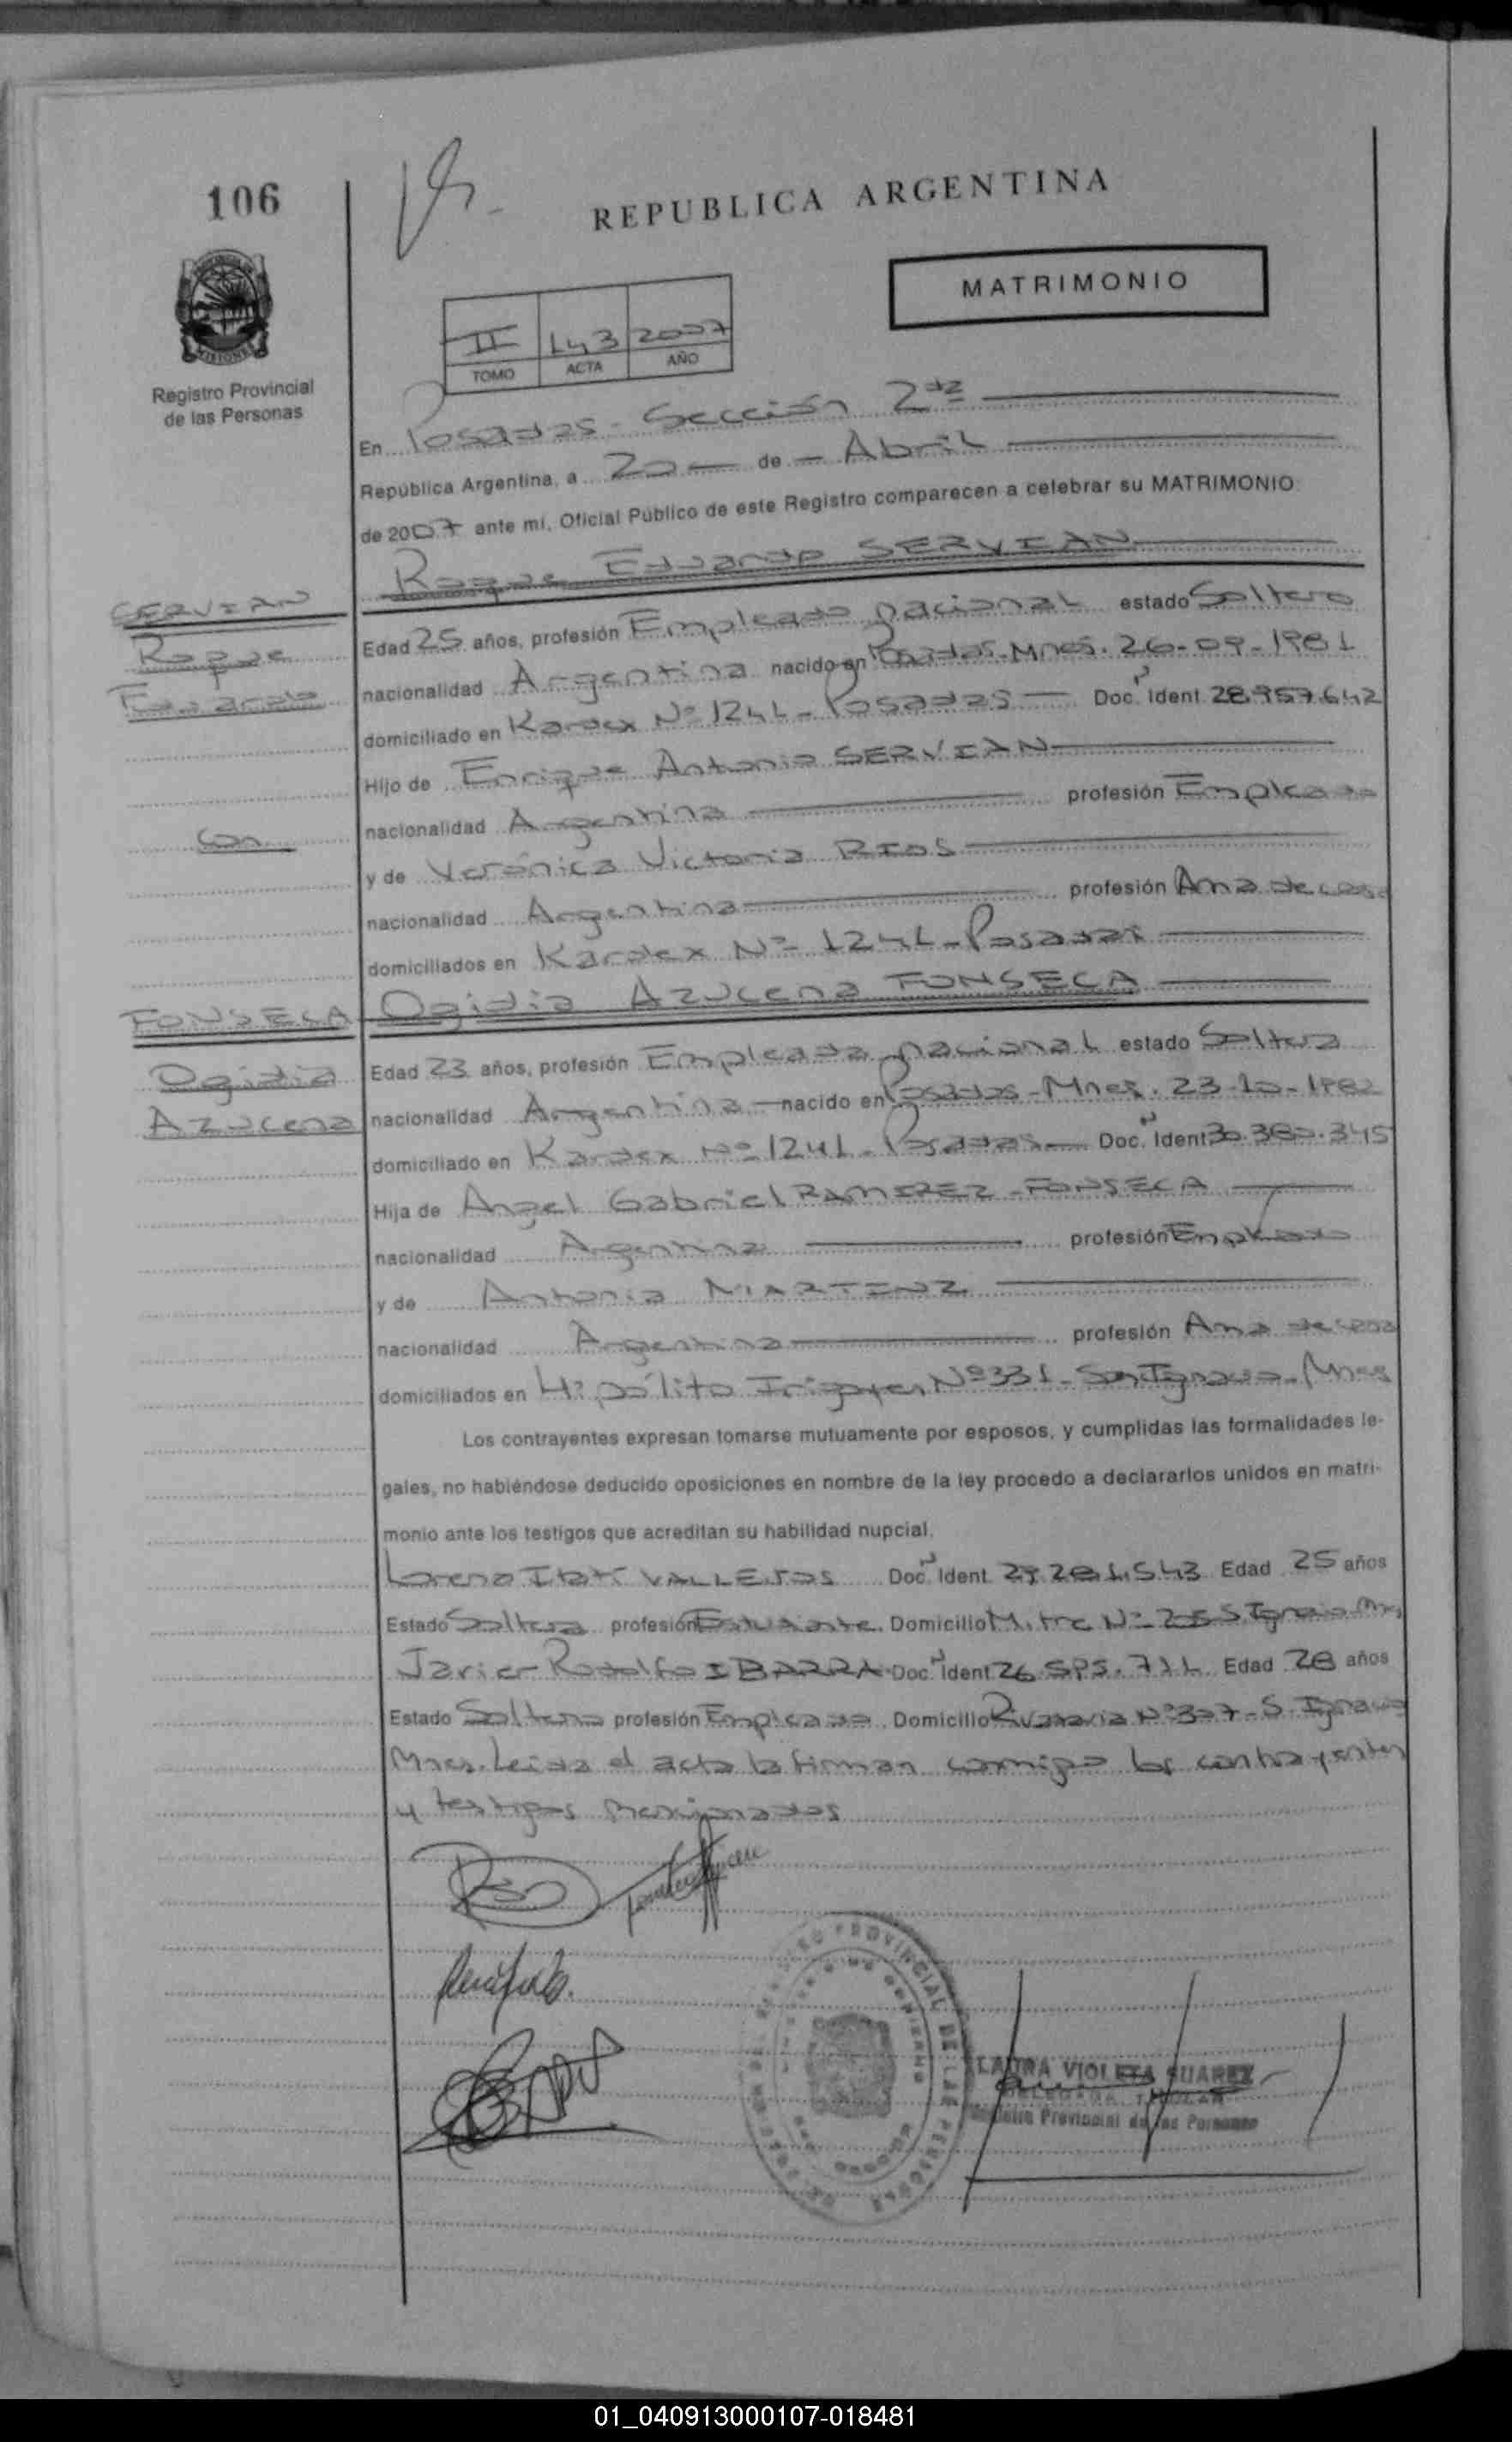 106
REPUBLICA ARGENTINA
MATRIMONIO
II 143 2007
TOMO ACTA AÑO
MISIONES
Registro Provincial
de las Personas
En Posadas - Sección 2da
República Argentina, a 20 de Abril
de 2007 ante mí, Oficial Público de este Registro comparecen a celebrar su MATRIMONIO:
Roque Eduardo SERVIAN
SERVIAN
Roque
Eduardo
con
FONSECA
Ogidia
Azucena
Edad 25 años, profesión Empleado nacional estado Soltero
nacionalidad Argentina nacido en Posadas-Mnes. 26-09-1981
domiciliado en Kardex Nº 1241 - Posadas Doc. Ident. 28.957.642
Hijo de Enrique Antonio SERVIAN
nacionalidad Argentina profesión Empleado
y de Verónica Victoria RIOS
nacionalidad Argentina profesión Ama de casa
domiciliados en Kardex Nº 1241 - Posadas
Ogidia Azucena FONSECA
Edad 23 años, profesión Empleada nacional estado Soltera
nacionalidad Argentina nacido en Posadas-Mnes. 23-10-1982
domiciliado en Kardex Nº 1241 - Posadas Doc. Ident 30.380.345
Hija de Angel Gabriel RAMIREZ - FONSECA
nacionalidad Argentina profesión Empleado
y de Antonia MARTINZ
nacionalidad Argentina profesión Ama de casa
domiciliados en Hipólito Irigoyen Nº 331 - San Ignacio - Mnes
Los contrayentes expresan tomarse mutuamente por esposos, y cumplidas las formalidades le-
gales, no habiéndose deducido oposiciones en nombre de la ley procedo a declararlos unidos en matri-
monio ante los testigos que acreditan su habilidad nupcial.
Lorena Itatí VALLEJOS Doc. Ident 29.281.543 Edad 25 años
Estado Soltera profesión Estudiante. Domicilio Mitre Nº S. Ignacio Mnes
Javier Rodolfo IBARRA Doc. Ident 26.595.711 Edad 28 años
Estado Soltero profesión Empleado. Domicilio Rivadavia Nº 307 - S. Ignacio
Mnes. Leida el acta la firman conmigo los contrayentes
y testigos mencionados
REGISTRO PROVINCIAL DE LAS PERSONAS
LAURA VIOLETA SUAREZ
DELEGADA TITULAR
Registro Provincial de las Personas
01_040913000107-018481